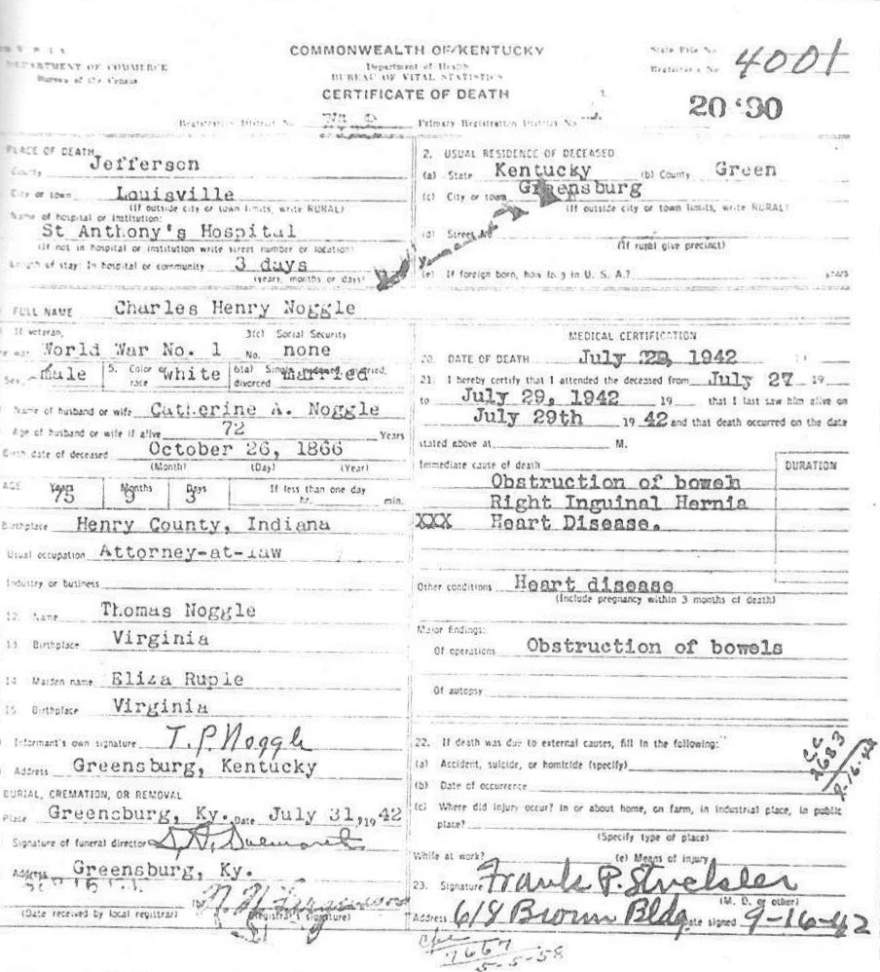 DEPARTMENT OF COMMERCE
Bureau of the Census
COMMONWEALTH OF KENTUCKY
Department of Health
BUREAU OF VITAL STATISTICS
CERTIFICATE OF DEATH
State File No.
Registrar's No. 4001
20 90
Registration District No.
Primary Registration District No.
PLACE OF DEATH
County Jefferson
City or town Louisville
(If outside city or town limits, write RURAL)
Name of hospital or institution:
St Anthony's Hospital
(If not in hospital or institution write street number or location)
Length of stay: In hospital or community 3 days
(years, months or days)
2. USUAL RESIDENCE OF DECEASED
(a) State Kentucky (b) County Green
(c) City or town Greensburg
(If outside city or town limits, write RURAL)
(d) Street
(If rural give precinct)
(e) If foreign born, how long in U. S. A.? years
FULL NAME Charles Henry Noggle
If veteran,
name war World War No. 1
3(c) Social Security
No. none
Sex male 5. Color or race white 6(a) Single, widowed, married, divorced married
Name of husband or wife Catherine A. Noggle
Age of husband or wife if alive 72 Years
Birth date of deceased October 26, 1866
(Month) (Day) (Year)
AGE Years 75 Months 9 Days 3 If less than one day hr. min.
Birthplace Henry County, Indiana
Usual occupation Attorney-at-law
Industry or business
12. Name Thomas Noggle
13. Birthplace Virginia
14. Maiden name Eliza Rupie
15. Birthplace Virginia
Informant's own signature T. P. Noggle
Address Greensburg, Kentucky
BURIAL, CREMATION, OR REMOVAL
Place Greensburg, Ky. Date July 31, 19 42
Signature of funeral director
Address Greensburg, Ky.
(Date received by local registrar) (Registrar's signature)
MEDICAL CERTIFICATION
20. DATE OF DEATH July 29, 1942 19
21. I hereby certify that I attended the deceased from July 27 19
to July 29, 1942 19 that I last saw him alive on
July 29th 19 42 and that death occurred on the date
stated above at M.
Immediate cause of death
DURATION
Obstruction of bowels
Right Inguinal Hernia
XXX Heart Disease.
Other conditions Heart disease
(Include pregnancy within 3 months of death)
Major Findings:
Of operations Obstruction of bowels
Of autopsy
22. If death was due to external causes, fill in the following:
(a) Accident, suicide, or homicide (specify)
(b) Date of occurrence
(c) Where did injury occur? In or about home, on farm, in industrial place, in public
place?
(Specify type of place)
While at work? (e) Means of injury
23. Signature Frank P. Strickler
(M. D. or other)
Address 618 Brown Bldg Date signed 9-16-42
7667
5-5-58